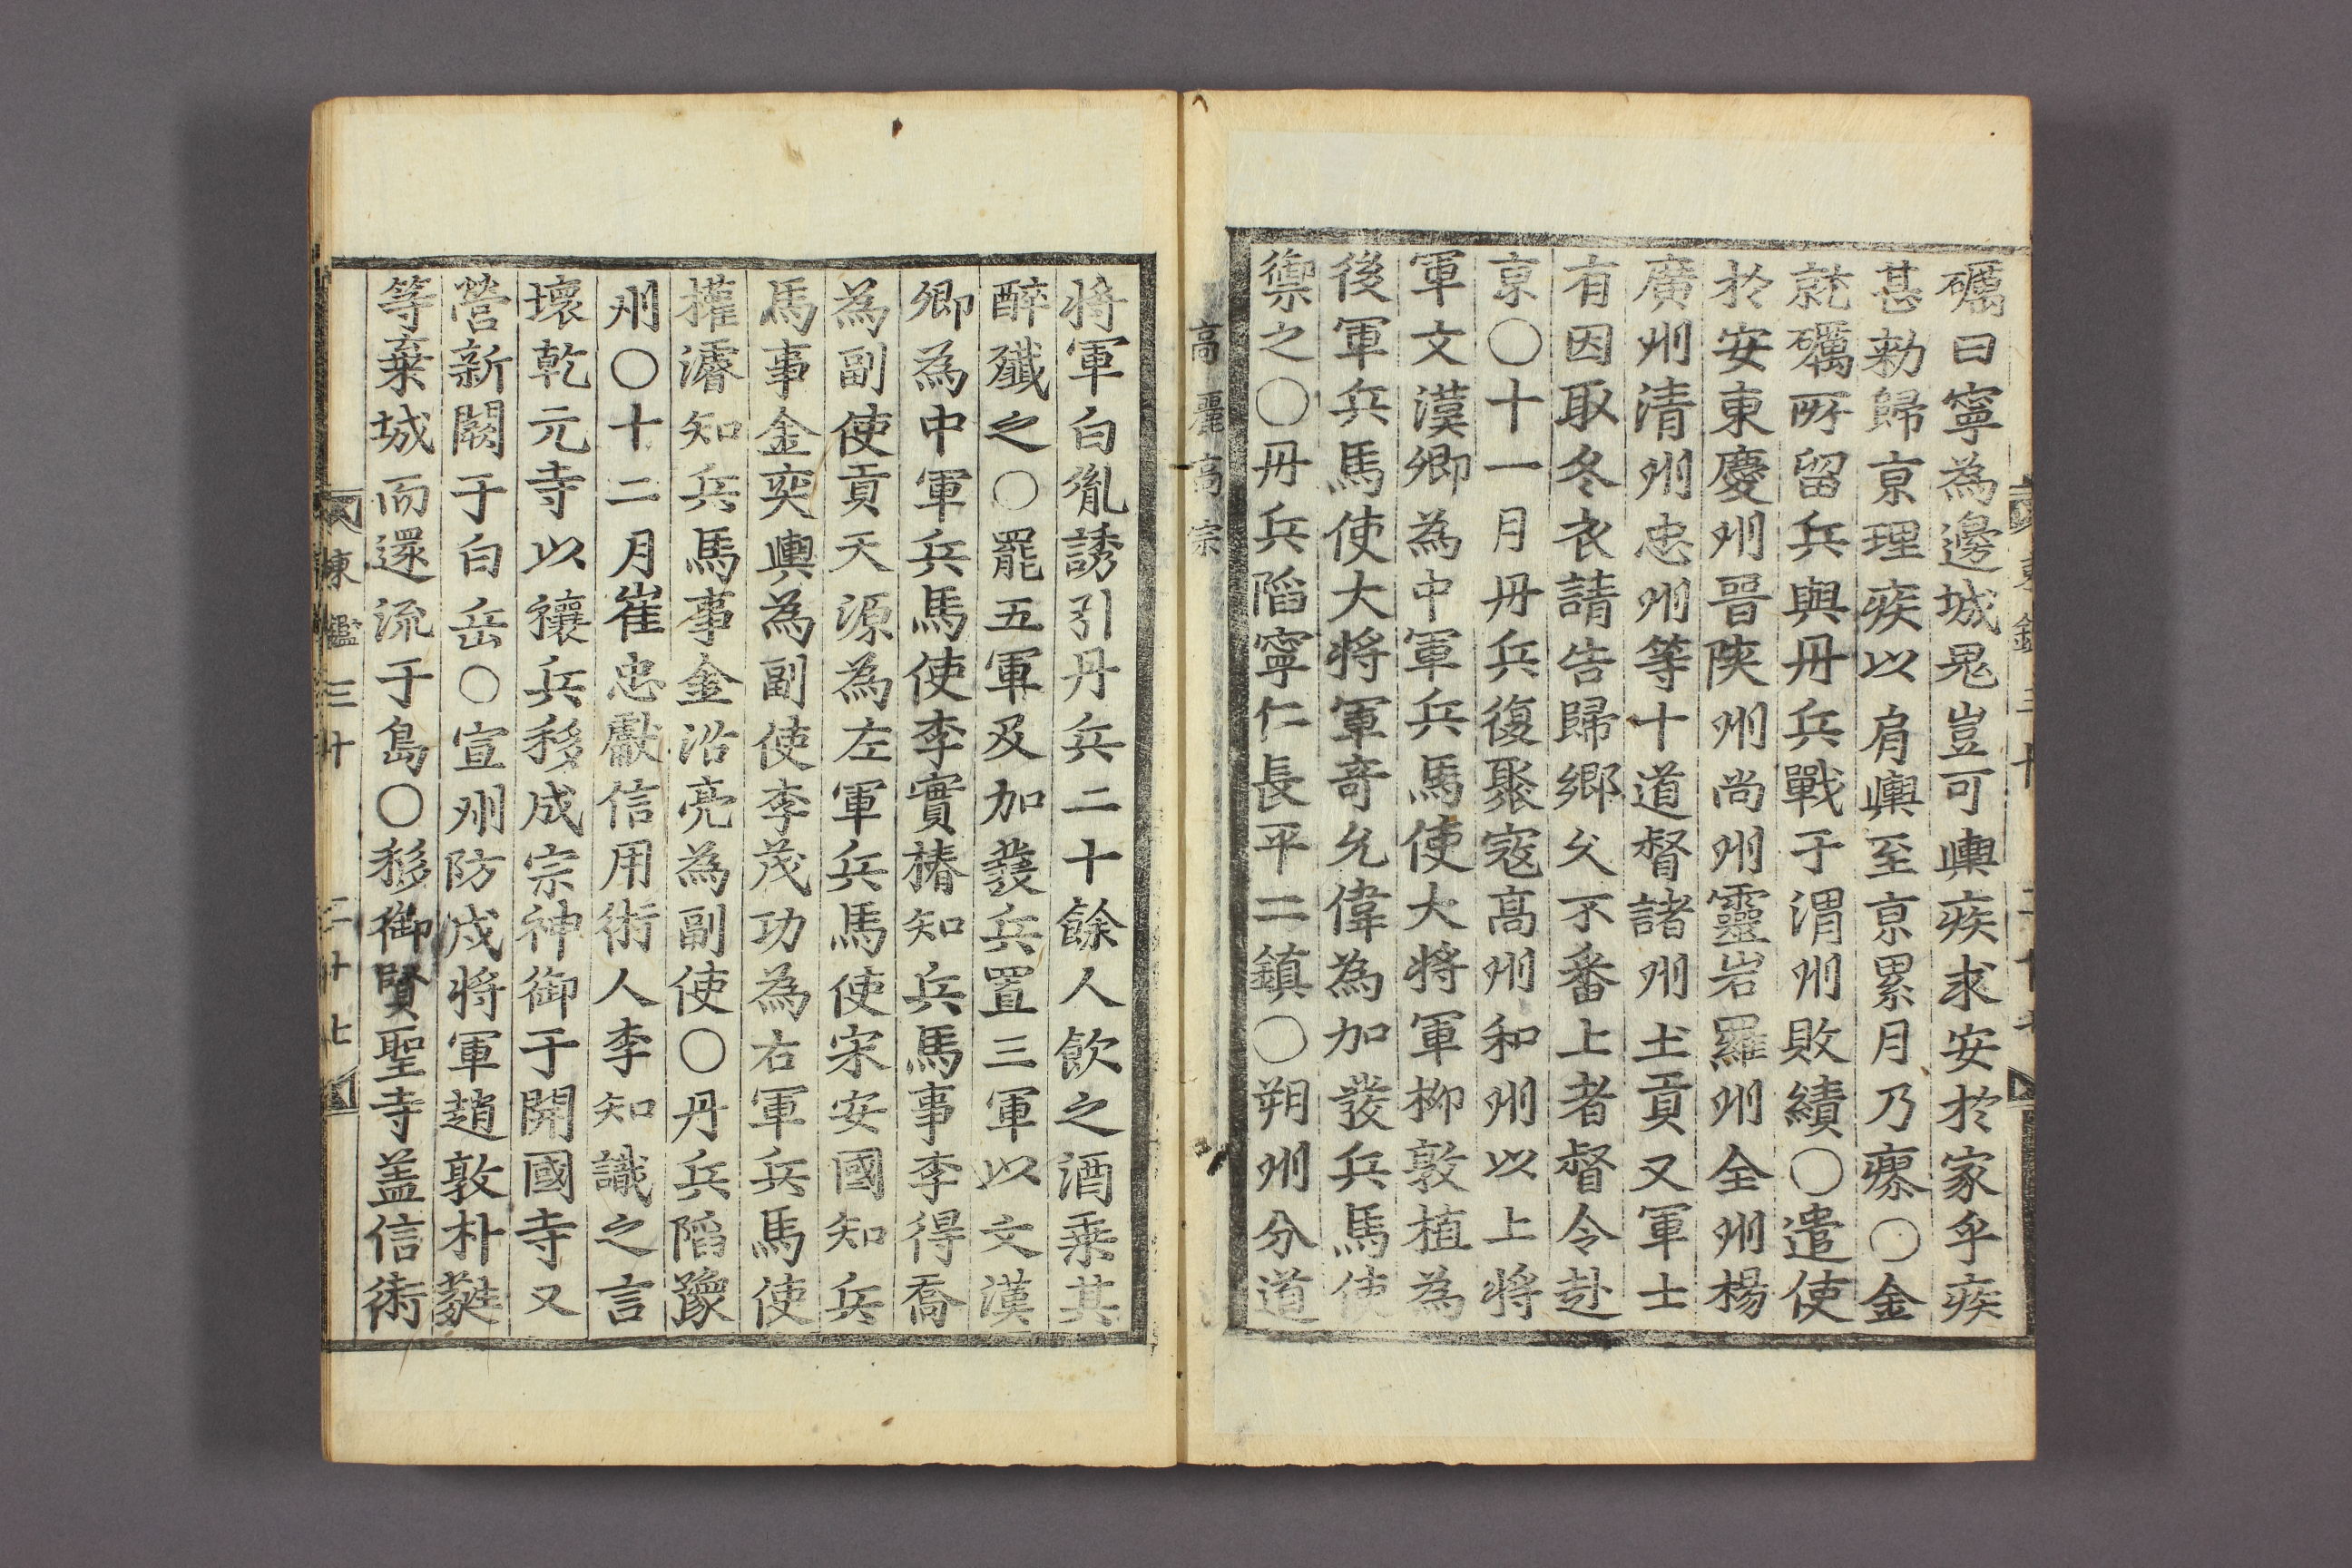 礪曰寧為邊城鬼豈可輿疾求安於家乎疾
甚勅歸京理疾以肩輿至京累月乃瘳○金
就礪所留兵與丹兵戰于渭州敗績○遣使
於安東慶州晉陜州尚州靈岩羅州全州楊
廣州清州忠州等十道督諸州土貢又軍士
有因取冬衣請告歸鄉久不番上者督令赴
京○十一月丹兵復聚寇高州和州以上將
軍文漢卿為中軍兵馬使大將軍柳敦植為
後軍兵馬使大將軍奇允偉為加發兵馬使
禦之○丹兵陷寧仁長平二鎮○朔州分道
高麗高宗
將軍白胤誘引丹兵二十餘人飲之酒乘其
醉殲之○罷五軍及加發兵置三軍以文漢
卿為中軍兵馬使李實椿知兵馬事李得喬
為副使貢天源為左軍兵馬使宋安國知兵
馬事金奕輿為副使李茂功為右軍兵馬使
權濬知兵馬事金沿亮為副使○丹兵陷豫
州○十二月崔忠獻信用術人李知識之言
壞乾元寺以禳兵移成宗神御于開國寺又
營新闕于白岳○宣州防戍將軍趙敦朴蕤
等棄城而還流于島○移御賢聖寺盖信術
東鑑三十 二十七